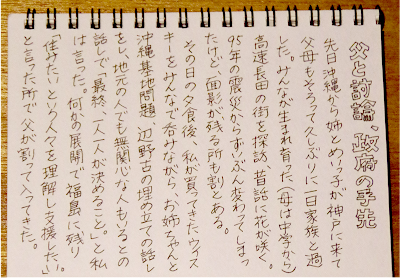 父と討論、政府の手先
先日沖縄から姉とめいっ子が神戸に来て
父母もそろって久しぶりに一日家族と過
した。みんなが生まれ育った(母は中学から)
高速長田の街を探訪、昔話に花が咲く。
95年の震災からずいぶん変わってしまっ
たけど、面影が残る所も割とある。
その日の夕食後、私が買ってきたウィス
キーをみんなで呑みながら、お姉ちゃんと
沖縄基地問題、辺野古の埋め立ての話し
をし、地元の人でも無関心な人もいるとの
話しで「最終、一人一人が決めること。」と私
は言った。何かの展開で「福島に残り
「住みたいという人々を理解し支援したい。」
と言った所で父が割って入ってきた。